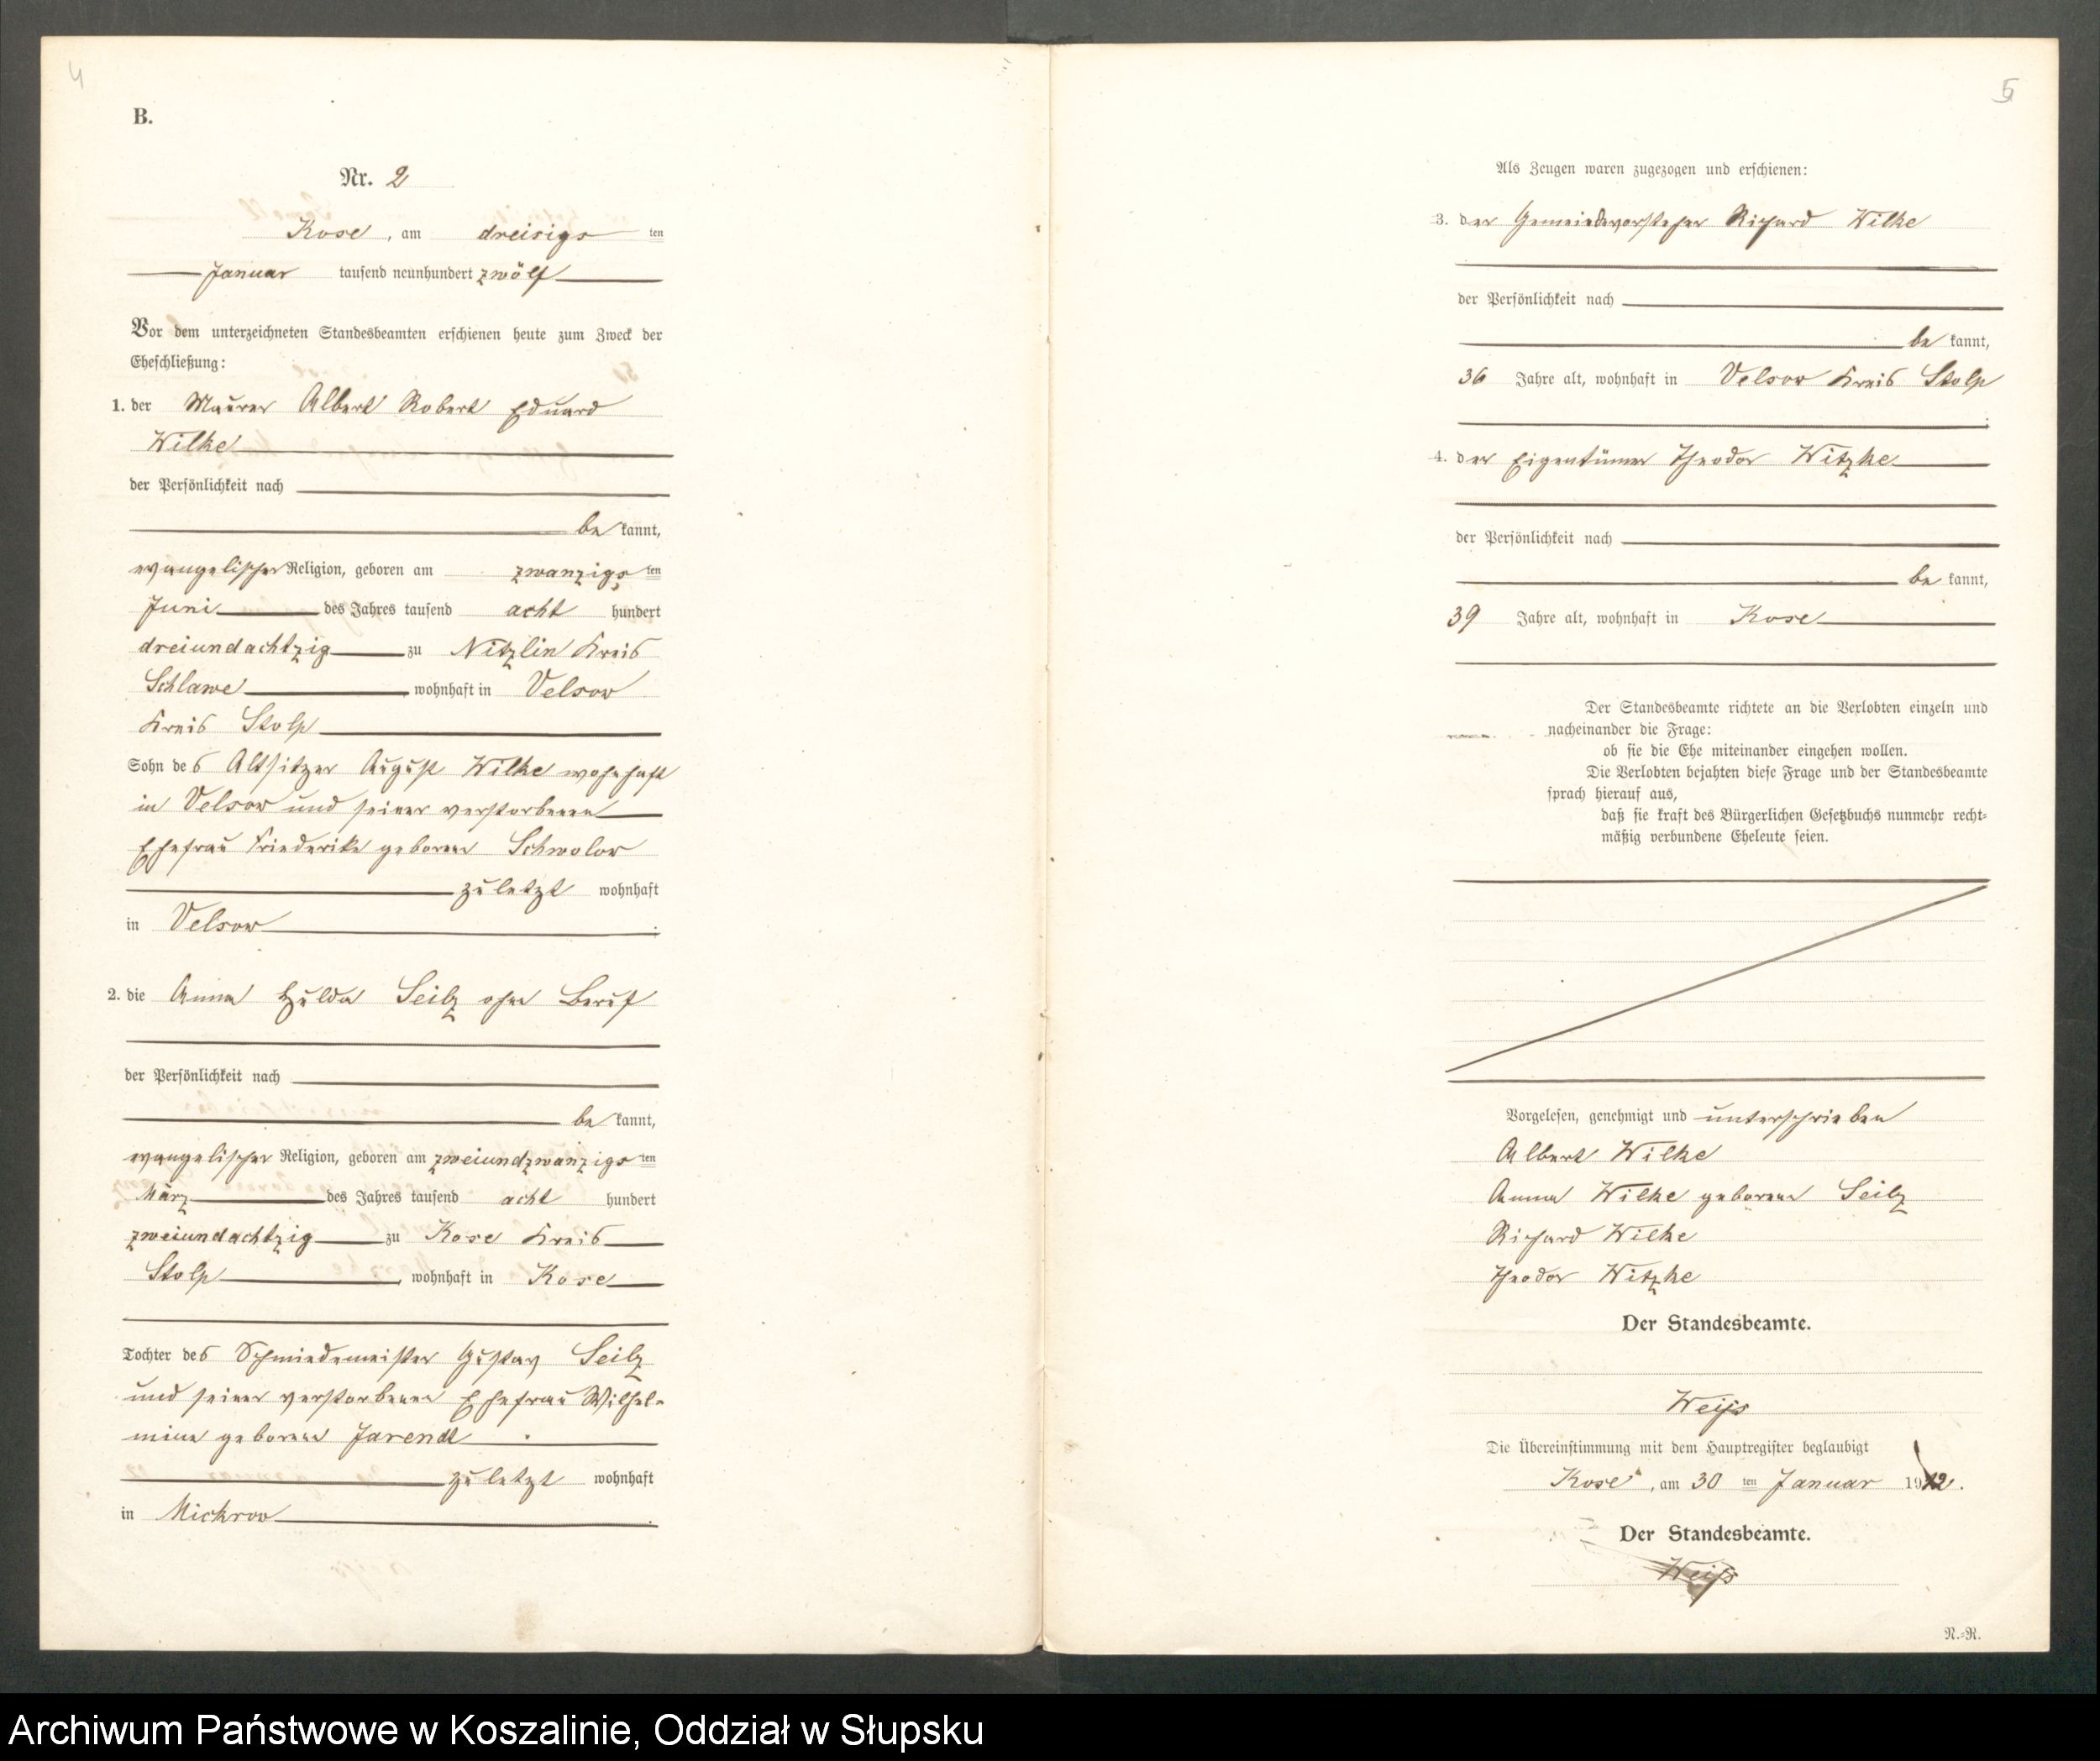 4
B.
Nr. 2
Kose, am dreisigs ten
Januar tausend neunhundert zwölf
Vor dem unterzeichneten Standesbeamten erschienen heute zum Zweck der
Eheschließung:
1. der Maurer Albert Robert Eduard
Wilke
der Persönlichkeit nach
be kannt,
evangelischer Religion, geboren am zwanzigs ten
Juni des Jahres tausend acht hundert
dreiundachtzig zu Nitzlin Kreis
Schlawe, wohnhaft in Velsow
Kreis Stolp
Sohn des Altsitzer August Wilke wohnhaft
in Velsow und seiner verstorbenen
Ehefrau Friederike geborene Schwolow
zuletzt wohnhaft
in Velsow.
2. die Anna Hulda Seilz ohne Beruf
der Persönlichkeit nach
be kannt,
evangelischer Religion, geboren am zweiundzwanzigs ten
März des Jahres tausend acht hundert
zweiundachtzig zu Kose Kreis
Stolp, wohnhaft in Kose
Tochter des Schmiedemeister Gustav Seilz
und seiner verstorbenen Ehefrau Wilhel-
mine geborene Jarendt
zuletzt wohnhaft
in Mickrow.
5
Als Zeugen waren zugezogen und erschienen:
3. der Gemeindevorsteher Richard Wilke
der Persönlichkeit nach
be kannt,
36 Jahre alt, wohnhaft in Velsow Kreis Stolp
;
4. der Eigentümer Theodor Witzke
der Persönlichkeit nach
be kannt,
39 Jahre alt, wohnhaft in Kose
Der Standesbeamte richtete an die Verlobten einzeln und
nacheinander die Frage:
ob sie die Ehe miteinander eingehen wollen.
Die Verlobten bejahten diese Frage und der Standesbeamte
sprach hierauf aus,
daß sie kraft des Bürgerlichen Gesetzbuchs nunmehr recht-
mäßig verbundene Eheleute seien.
Vorgelesen, genehmigt und unterschrieben
Albert Wilke
Anna Wilke geborene Seilz
Richard Wilke
Theodor Witzke
Der Standesbeamte.
Weiss
Die Übereinstimmung mit dem Hauptregister beglaubigt
Kose, am 30 ten Januar 1912.
Der Standesbeamte.
Weiss
N.-R.
Archiwum Państwowe w Koszalinie, Oddział w Słupsku